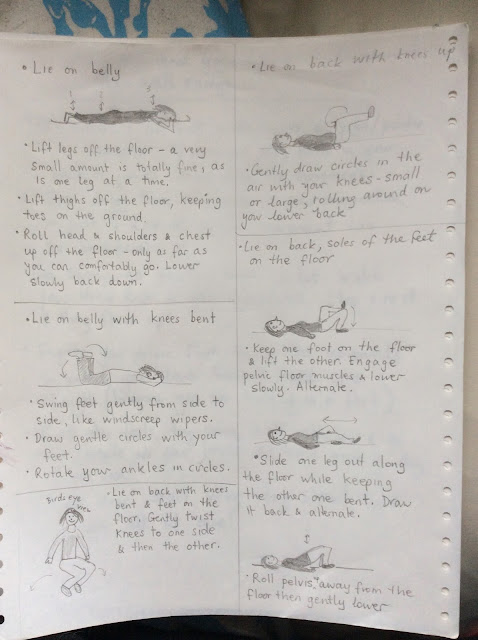 • Lie on belly
• Lift legs off the floor – a very
small amount is totally fine, as
is one leg at a time.
• Lift thighs off the floor, keeping
toes on the ground.
• Roll head & shoulders & chest
up off the floor – only as far as
you can comfortably go. Lower
slowly back down.
• Lie on belly with knees bent
• Swing feet gently from side to
side, like windscreep wipers.
• Draw gentle circles with your
feet.
• Rotate your ankles in circles.
Birds eye
view
• Lie on back with knees
bent & feet on the
floor. Gently twist
knees to one side
& then the other.
• Lie on back with knees up
• Gently draw circles in the
air with your knees – small
or large, rolling around on
your lower back
• Lie on back, soles of the feet
on the floor
• Keep one foot on the floor
& lift the other. Engage
pelvic floor muscles & lower
slowly. Alternate.
• Slide one leg out along
the floor while keeping
the other one bent. Draw
it back & alternate.
• Roll pelvis away from the
floor then gently lower